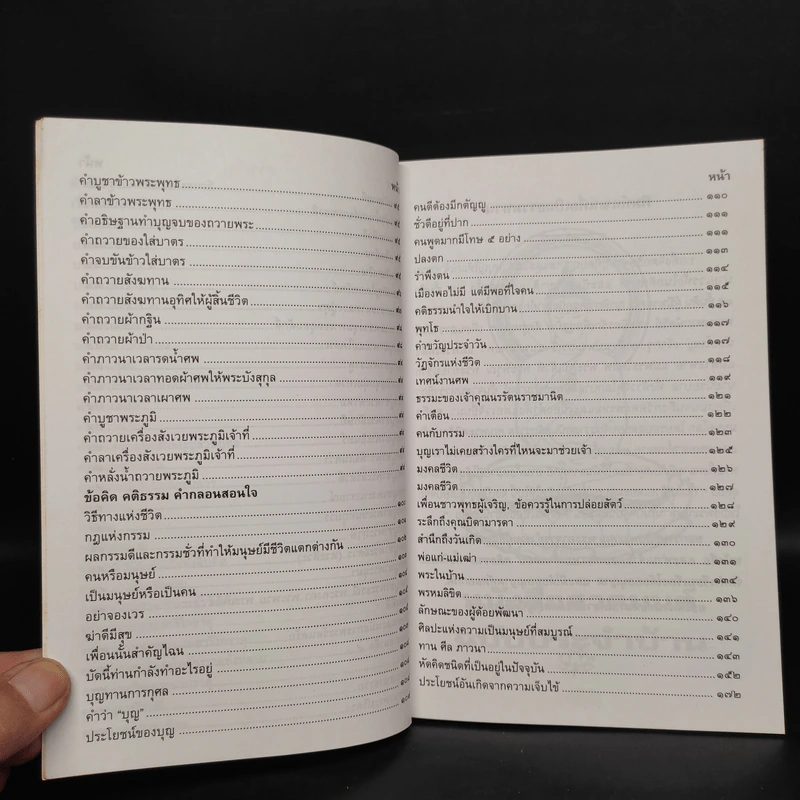 คำบูชาข้าวพระพุทธ
คำลาข้าวพระพุทธ
คำอธิษฐานทำบุญจบของถวายพระ
คำถวายของใส่บาตร
คำจบขันข้าวใส่บาตร
คำถวายสังฆทาน
คำถวายสังฆทานอุทิศให้ผู้สิ้นชีวิต
คำถวายผ้ากฐิน
คำถวายผ้าป่า
คำภาวนาเวลารดน้ำศพ
คำภาวนาเวลาทอดผ้าศพให้พระบังสุกุล
คำภาวนาเวลาเผาศพ
คำบูชาพระภูมิ
คำถวายเครื่องสังเวยพระภูมิเจ้าที่
คำลาเครื่องสังเวยพระภูมิเจ้าที่
คำหลั่งน้ำถวายพระภูมิ
ข้อคิด คติธรรม คำกลอนสอนใจ
วิธีทางแห่งชีวิต
กฎแห่งกรรม
ผลกรรมดีและกรรมชั่วที่ทำให้มนุษย์มีชีวิตแตกต่างกัน
คนหรือมนุษย์
เป็นมนุษย์หรือเป็นคน
อย่าจองเวร
ฆ่าดีมีสุข
เพื่อนนั้นสำคัญไฉน
บัดนี้ท่านกำลังทำอะไรอยู่
บุญทานการกุศล
คำว่า “บุญ”
ประโยชน์ของบุญ
หน้า
คนดีต้องมีกตัญญู ๑๑๐
ชั่วดีอยู่ที่ปาก ๑๑๑
คนพูดมากมีโทษ ๕ อย่าง ๑๑๑
ปลงตก ๑๑๓
รำพึงตน ๑๑๔
เมืองพอไม่มี แต่มีพอที่ใจคน ๑๑๕
คติธรรมนำใจให้เบิกบาน ๑๑๖
พุทโธ ๑๑๗
คำขวัญประจำวัน ๑๑๗
วัฏจักรแห่งชีวิต ๑๑๘
เทศน์งานศพ ๑๑๙
ธรรมะของเจ้าคุณนรรัตนราชมานิต ๑๒๑
คำเตือน ๑๒๒
คนกับกรรม ๑๒๓
บุญเราไม่เคยสร้างใครที่ไหนจะมาช่วยเจ้า ๑๒๕
มงคลชีวิต ๑๒๖
มงคลชีวิต ๑๒๗
เพื่อนชาวพุทธผู้เจริญ, ข้อควรรู้ในการปล่อยสัตว์ ๑๒๘
ระลึกถึงคุณบิดามารดา ๑๒๙
สำนึกถึงวันเกิด ๑๓๐
พ่อแก่-แม่เฒ่า ๑๓๑
พระในบ้าน ๑๓๔
พรหมลิขิต ๑๓๖
ลักษณะของผู้ด้อยพัฒนา ๑๔๐
ศิลปะแห่งความเป็นมนุษย์ที่สมบูรณ์ ๑๔๑
ทาน ศีล ภาวนา ๑๔๓
หัดคิดชนิดที่เป็นอยู่ในปัจจุบัน ๑๕๒
ประโยชน์อันเกิดจากความเจ็บไข้ ๑๗๒